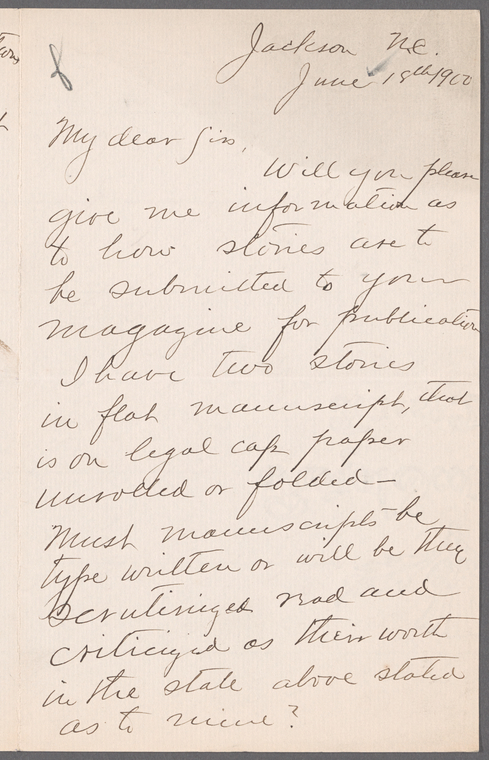 Jackson N.C.
June 18th 1900
My dear Sir,
Will you please
give me information as
to how stories are to
be submitted to your
magazine for publication
I have two stories
in flat manuscript, that
is on legal cap paper
unrolled or folded—
Must manuscripts be
type written or will be they
scrutinized read and
criticized as their worth
in the state above stated
as to mine?